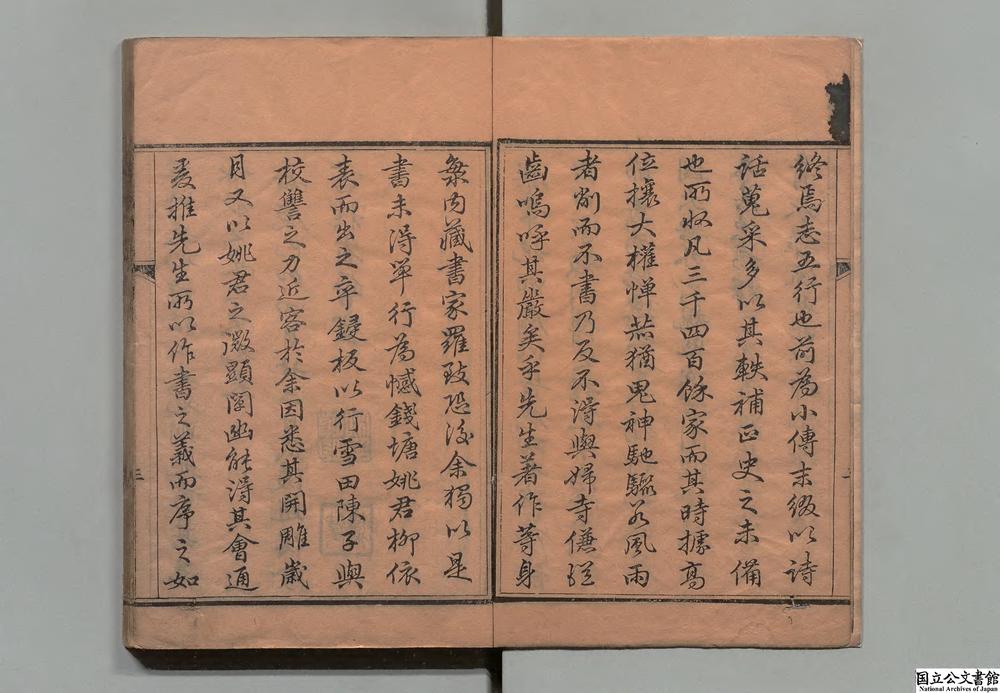 終焉志五行也前為小傳末綴以詩
話蒐采多以其軼補正史之未備
也所收凡三千四百餘家而其時據高
位攘大權憚赫猶鬼神馳驟若風雨
者削而不書乃反不得與婦寺傔從
齒嗚呼其嚴矣乎先生著作等身
海内藏書家羅致恐後余獨以是
書未得單行為憾錢塘姚君柳依
表而出之卒鋟板以行雪田陳子與
校讐之力近客於余因悉其開雕歲
月又以姚君之微顯闡幽能得其會通
爰推先生所以作書之義而序之如
三
国立公文書館
National Archives of Japan